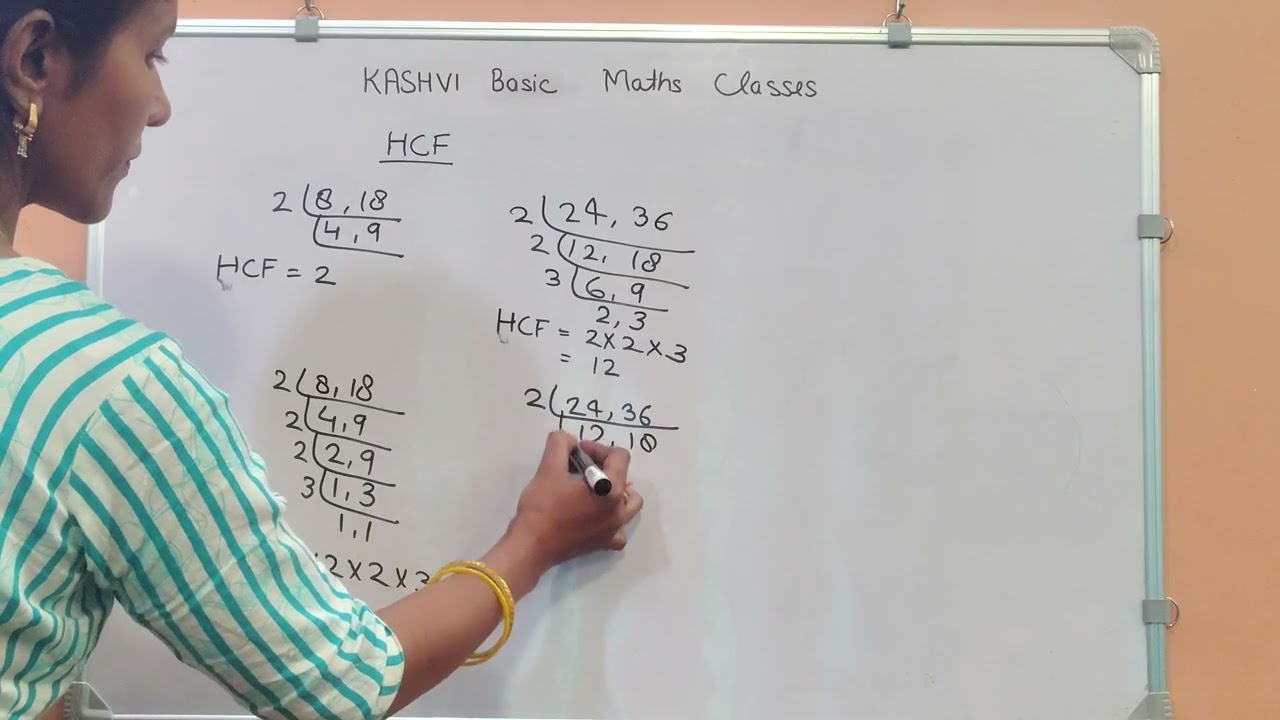 KASHVI Basic Maths Classes
HCF
2 8, 18
4, 9
HCF = 2
2 24, 36
2 12, 18
3 6, 9
2, 3
HCF = 2×2×3
= 12
2 8, 18
2 4, 9
2 2, 9
3 1, 3
1, 1
2×2×3
2 24, 36
12, 18